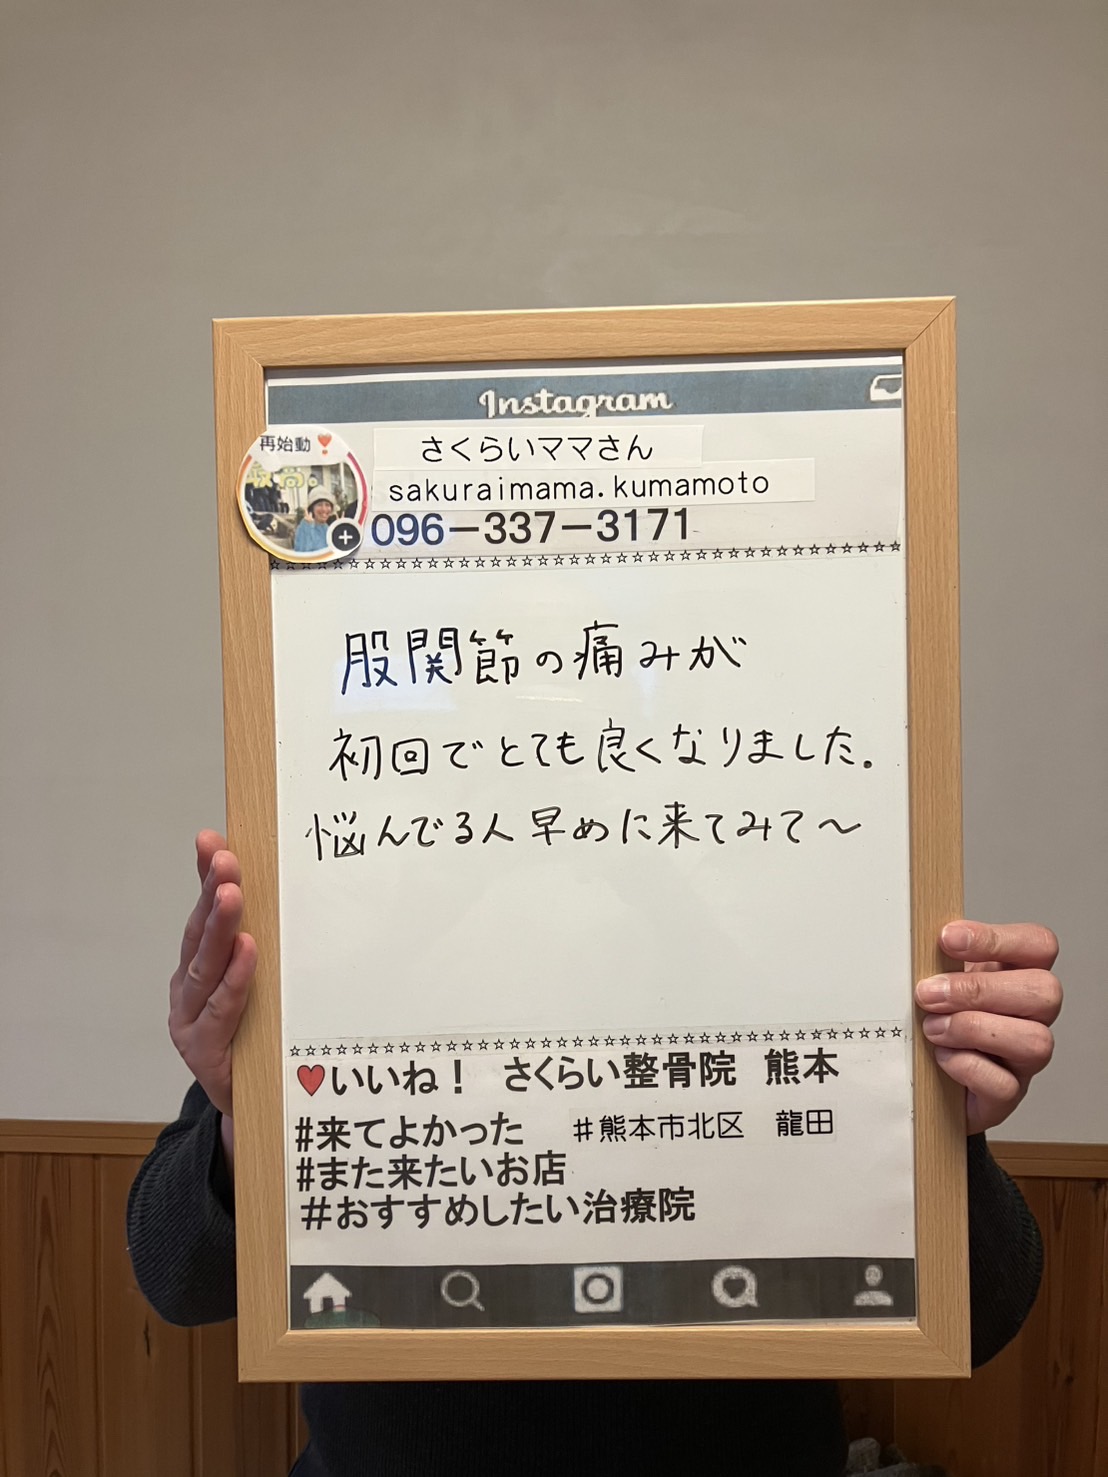 Instagram
再始動❣
さくらいママさん
sakuraimama.kumamoto
096-337-3171
☆☆☆☆☆☆☆☆☆☆☆☆☆☆☆☆☆☆☆☆☆☆☆☆☆☆☆☆☆☆☆☆☆☆☆☆☆☆☆☆
股関節の痛みが
初回でとても良くなりました。
悩んでる人早めに来てみて～
☆☆☆☆☆☆☆☆☆☆☆☆☆☆☆☆☆☆☆☆☆☆☆☆☆☆☆☆☆☆☆☆☆☆☆☆☆☆☆☆
♥いいね！ さくらい整骨院 熊本
#来てよかった #熊本市北区 龍田
#また来たいお店
#おすすめしたい治療院